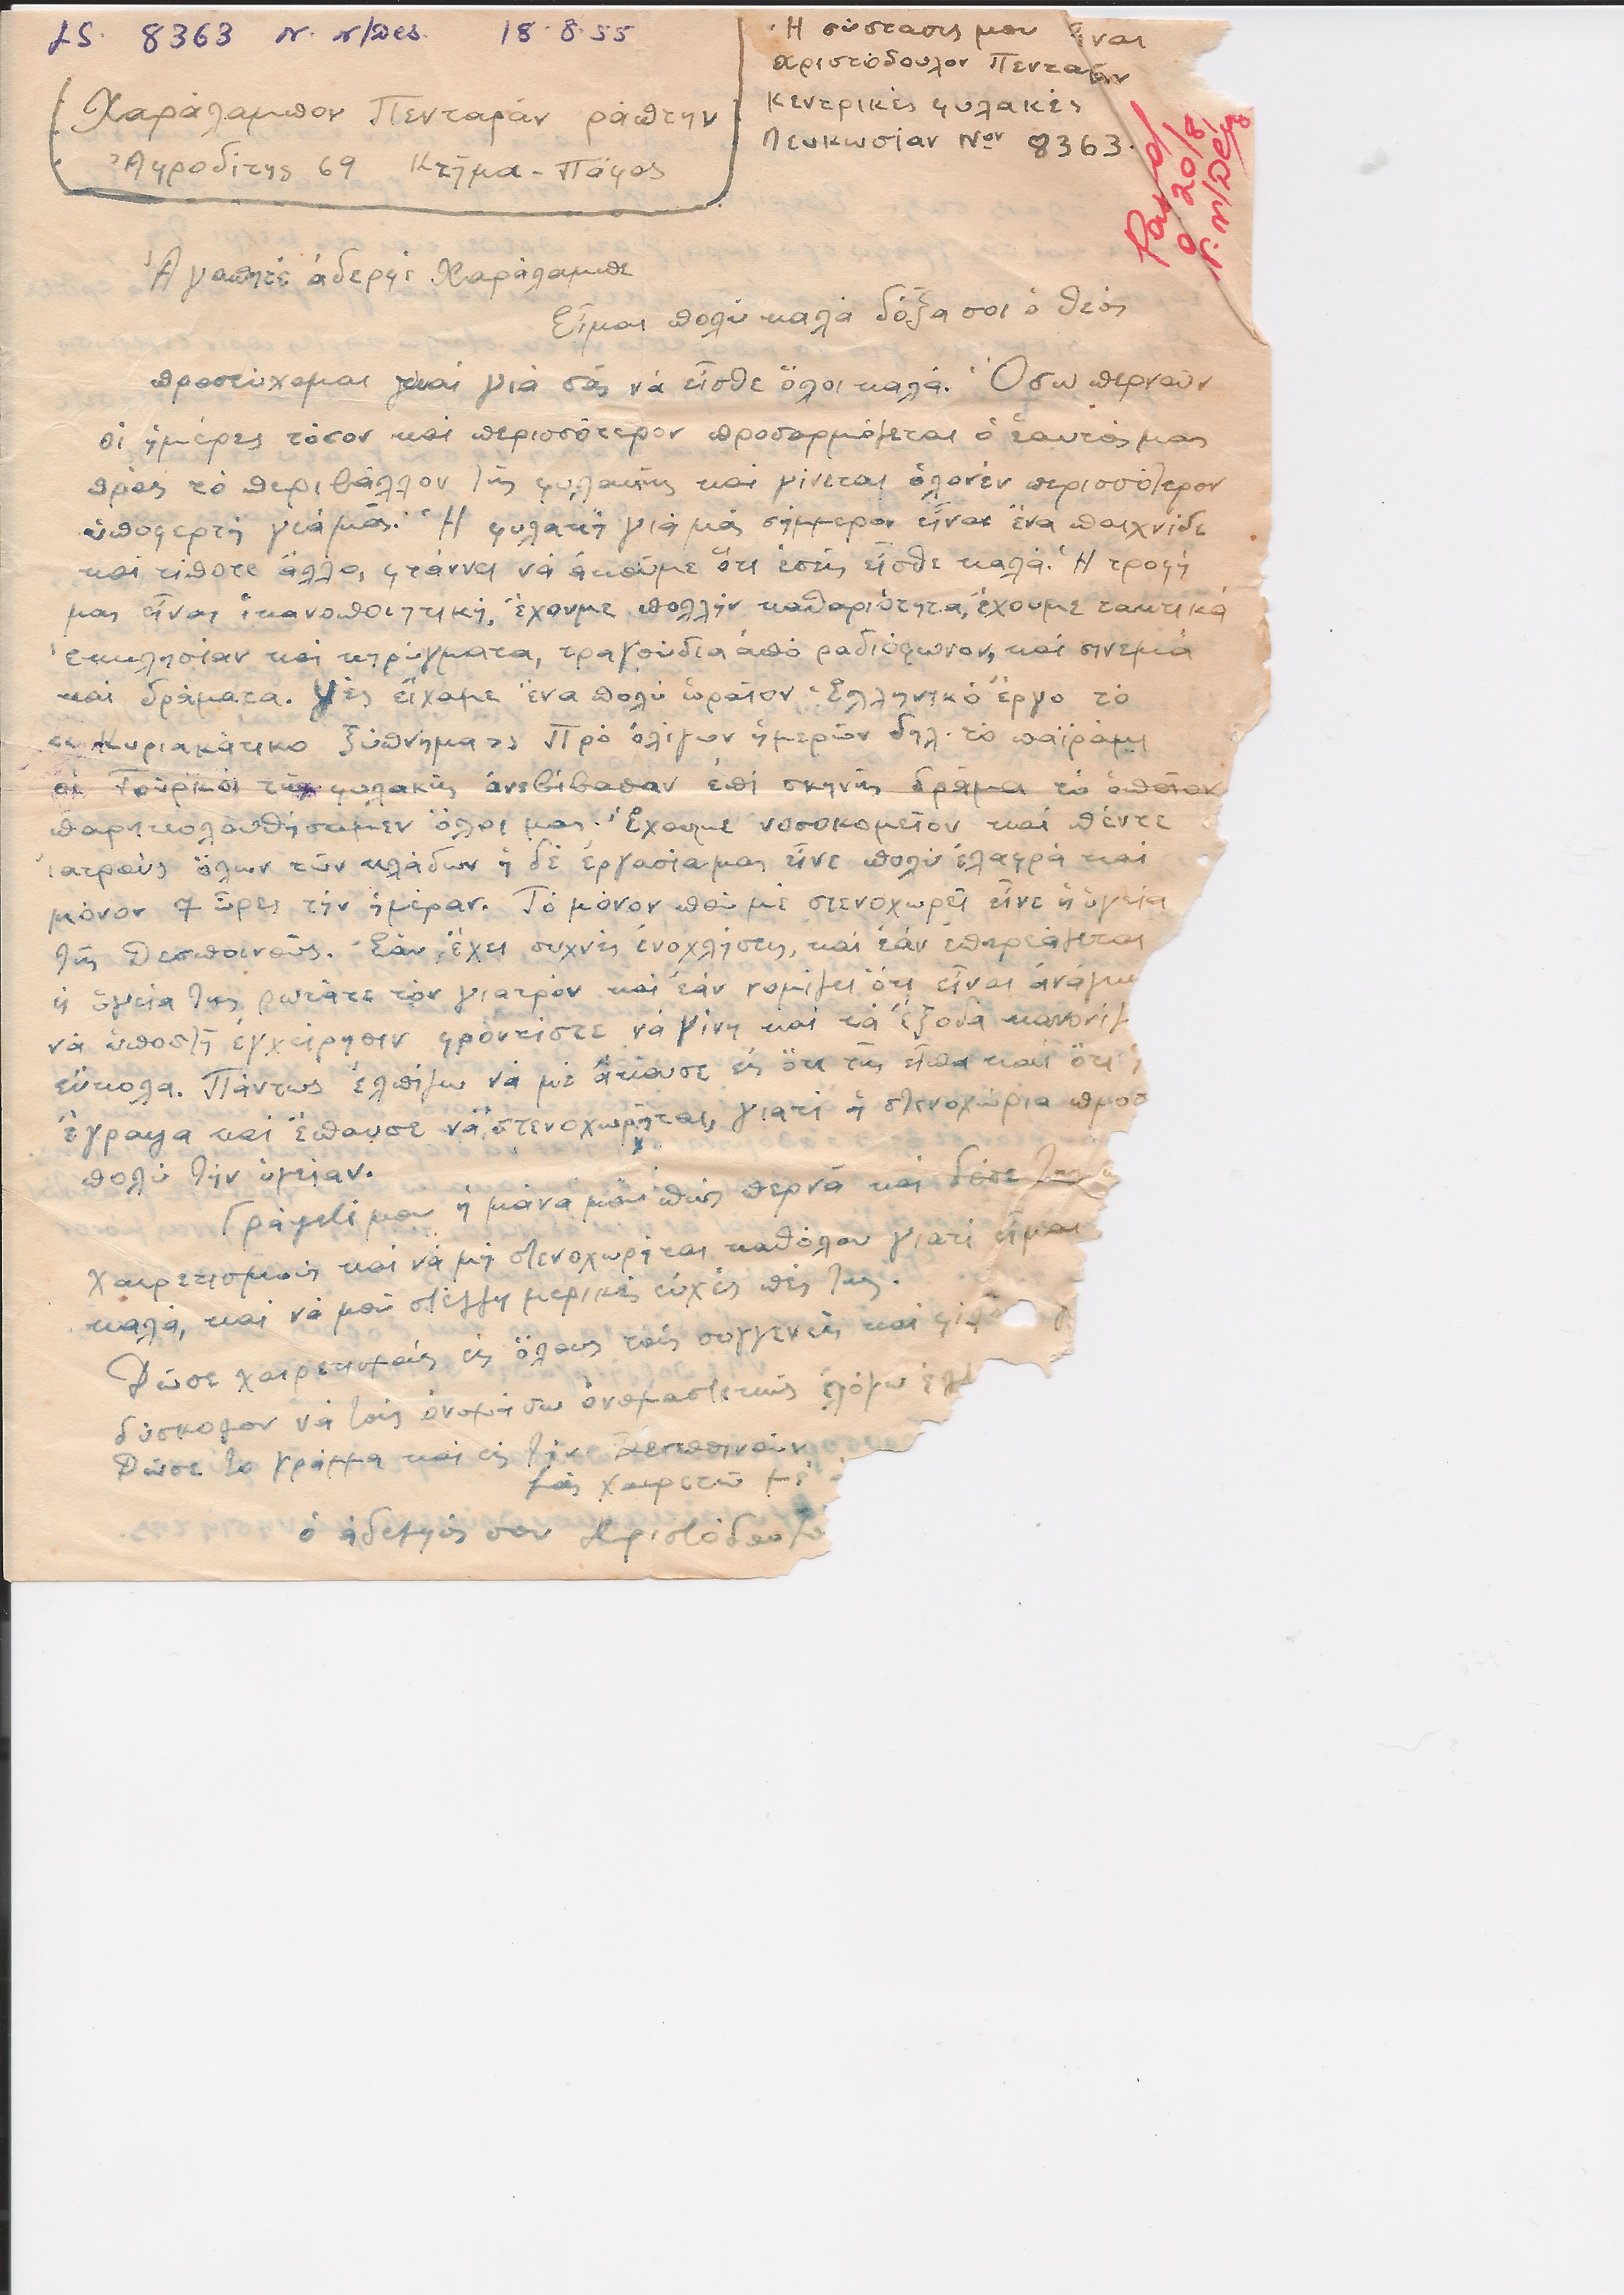 8363 18.8.55
Ἡ σύστασις μου εἶναι
Χριστόδουλον Πενταρᾶν
Κεντρικὲς φυλακὲς
Λευκωσίαν Νον 8363.
Passed
20/8
Χαράλαμπον Πενταρᾶν ράπτην
Ἀφροδίτης 69 Κτῆμα - Πάφος
Ἀγαπητὲ ἀδερφὲ Χαράλαμπε
Εἶμαι πολὺ καλὰ δόξα σοι ὁ θεὸς
προσεύχομαι καὶ γιὰ σᾶς νὰ εἶσθε ὅλοι καλά. Ὅσω περνοῦν
οἱ ἡμέρες τόσον καὶ περισσότερον προσαρμόζεται ὁ ἑαυτός μας
πρὸς τὸ περιβάλλον τῆς φυλακῆς καὶ γίνεται ὁλονὲν περισσότερον
ὑποφερτὴ γιὰ μᾶς. Ἡ φυλακὴ γιὰ μᾶς σήμμερον εἶναι ἕνα παιχνίδι
καὶ τίποτε ἄλλο, φτάννει νὰ ἀκοῦμε ὅτι ἐσεῖς εἶσθε καλά. Ἡ τροφή
μας εἶναι ἱκανοποιητική, ἔχουμε πολλὴν καθαριότητα, ἔχουμε τακτικὰ
ἐκκλησίαν καὶ κηρύγματα, τραγούδια ἀπὸ ραδιόφωνον, καὶ σινεμὰ
καὶ δράματα. Χὲς εἴχαμε ἕνα πολὺ ὡραῖον Ἑλληνικὸ ἔργο τὸ
«Κυριακάτικο ξύπνημα» Πρὸ ὀλίγων ἡμερῶν δηλ. τὸ παϊράμι
οἱ Τοῦρκοι τῆς φυλακῆς ἀνεβίβασαν ἐπὶ σκηνῆς δρᾶμα τὸ ὁποῖον
παρηκολουθήσαμεν ὅλοι μας. Ἔχουμε νοσοκομεῖον καὶ πέντε
ἰατροὺς ὅλων τῶν κλάδων ἡ δὲ ἐργασία μας εἶνε πολὺ ἐλαφρὰ καὶ
μόνον 7 ὧρες τὴν ἡμέραν. Τὸ μόνον ποὺ μὲ στενοχωρεῖ εἶνε ἡ ὑγεία
τῆς Δεσποινοῦς. Ἐὰν ἔχει συχνὲς ἐνοχλήσεις, καὶ ἐὰν ἐπηρεάζεται
ἡ ὑγεία της ρωτᾶτε τὸν γιατρὸν καὶ ἐὰν νομίζει ὅτι εἶναι ἀνάγκη
νὰ ὑποστῆ ἐγχείρησιν φροντίστε νὰ γίνη καὶ τὰ ἔξοδα κανονίζ
εὔκολα. Πάντως ἐλπίζω νὰ μὲ ἄκουσε εἰς ὅτι τῆς εἶπα καὶ ὅτι
ἔγραψα καὶ ἔπαυσε νὰ στενοχωρῆται, γιατὶ ἡ στενοχώρια
πολὺ τὴν ὑγείαν.
Γράψετέ μου ἡ μάνα μου πῶς περνᾶ καὶ δόσε της
χαιρετισμοὺς καὶ νὰ μὴ στενοχωρῆται καθόλου γιατὶ εἶμαι
καλά, καὶ νὰ μοῦ στέλλη μερικὲς εὐχὲς πές της.
Δῶσε χαιρετισμοὺς εἰς ὅλους τοὺς συγγενεῖς καὶ
δύσκολον νὰ τοὺς ὀνομάσω ὀνομαστικῶς
Δῶσε τὸ γράμμα καὶ εἰς τὴν Δεσποινοῦν
Σᾶς χαιρετῶ μὲ
ὁ ἀδελφός σου Χριστόδουλο